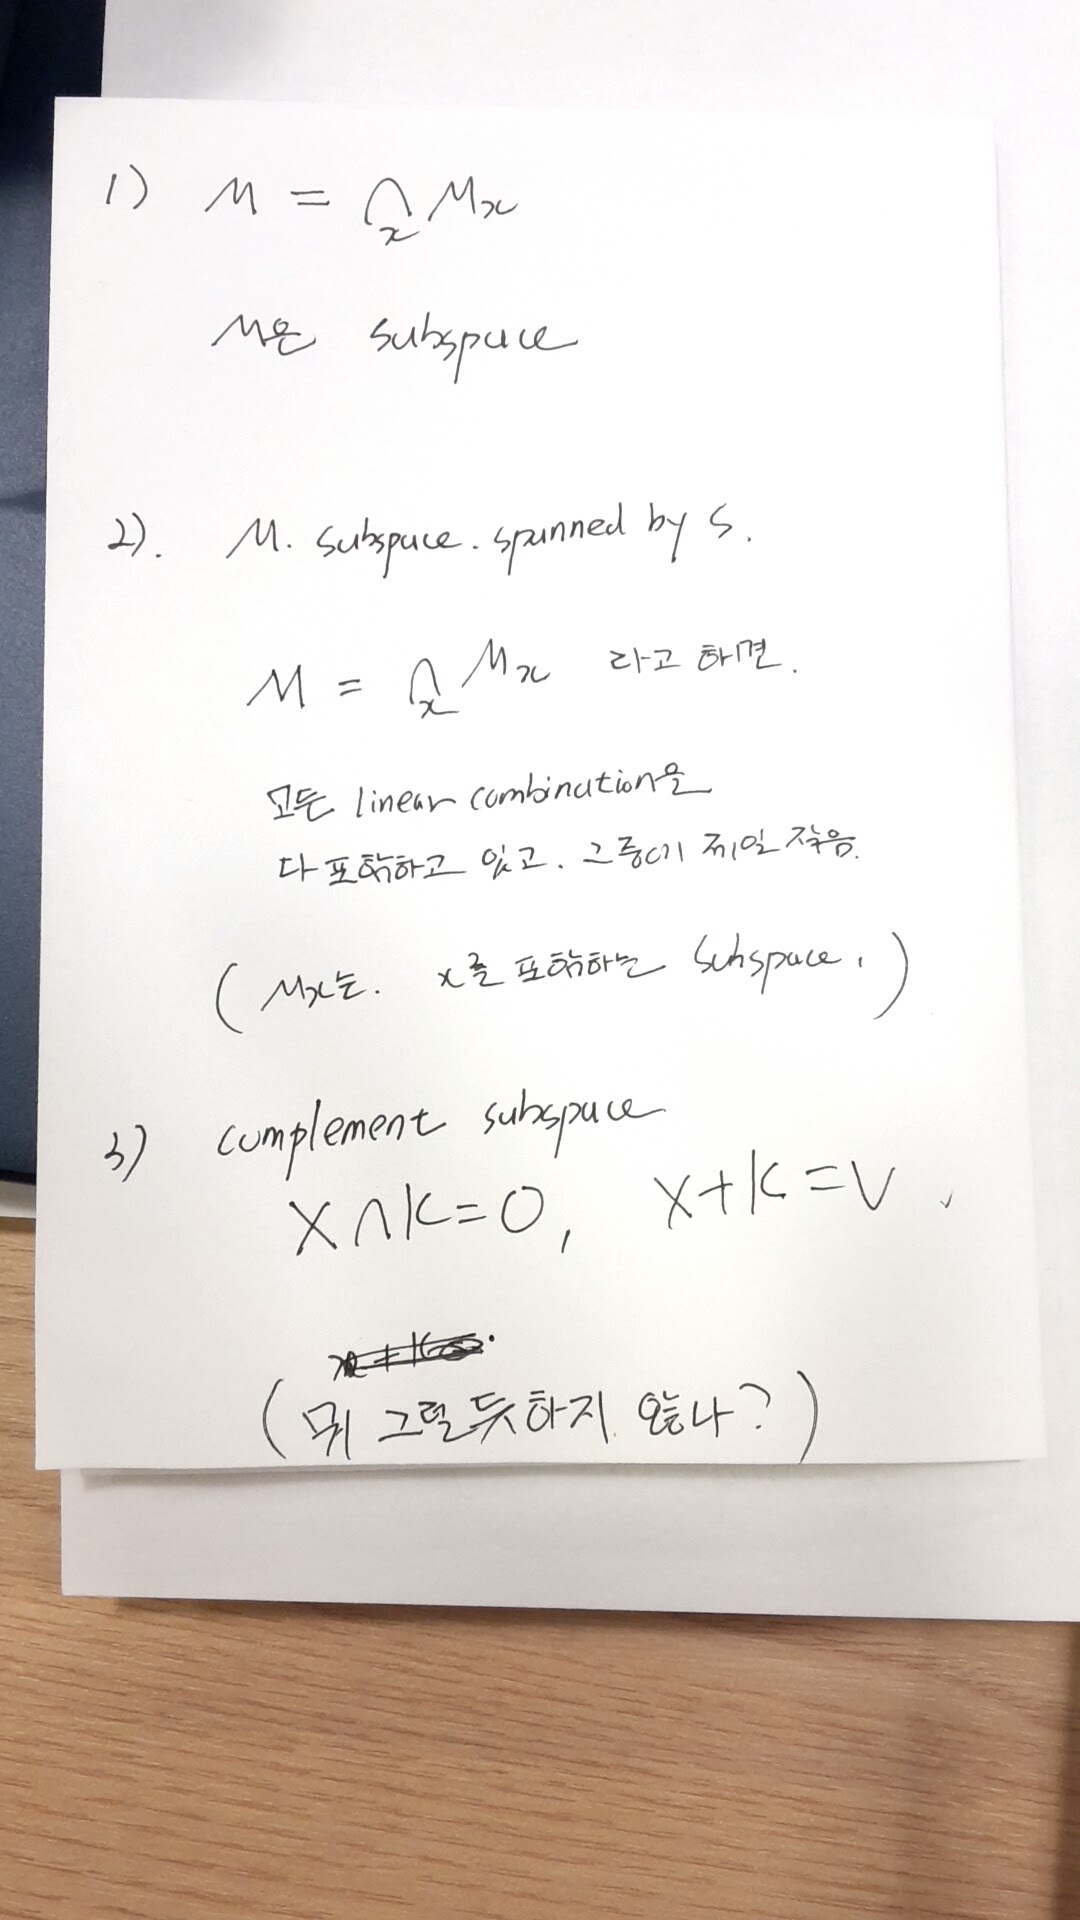 1) M = ∩ Mx
x
M은 subspace
2). M. subspace. spanned by S.
M = ∩ Mx 라고 하면.
x
모든 linear combination을
다 포함하고 있고. 그중에 제일 작음.
( Mx는. x를 포함하는 subspace. )
3) complement subspace
X∩K=0, X+K=V.
( 뭐 그럴듯하지 않나? )